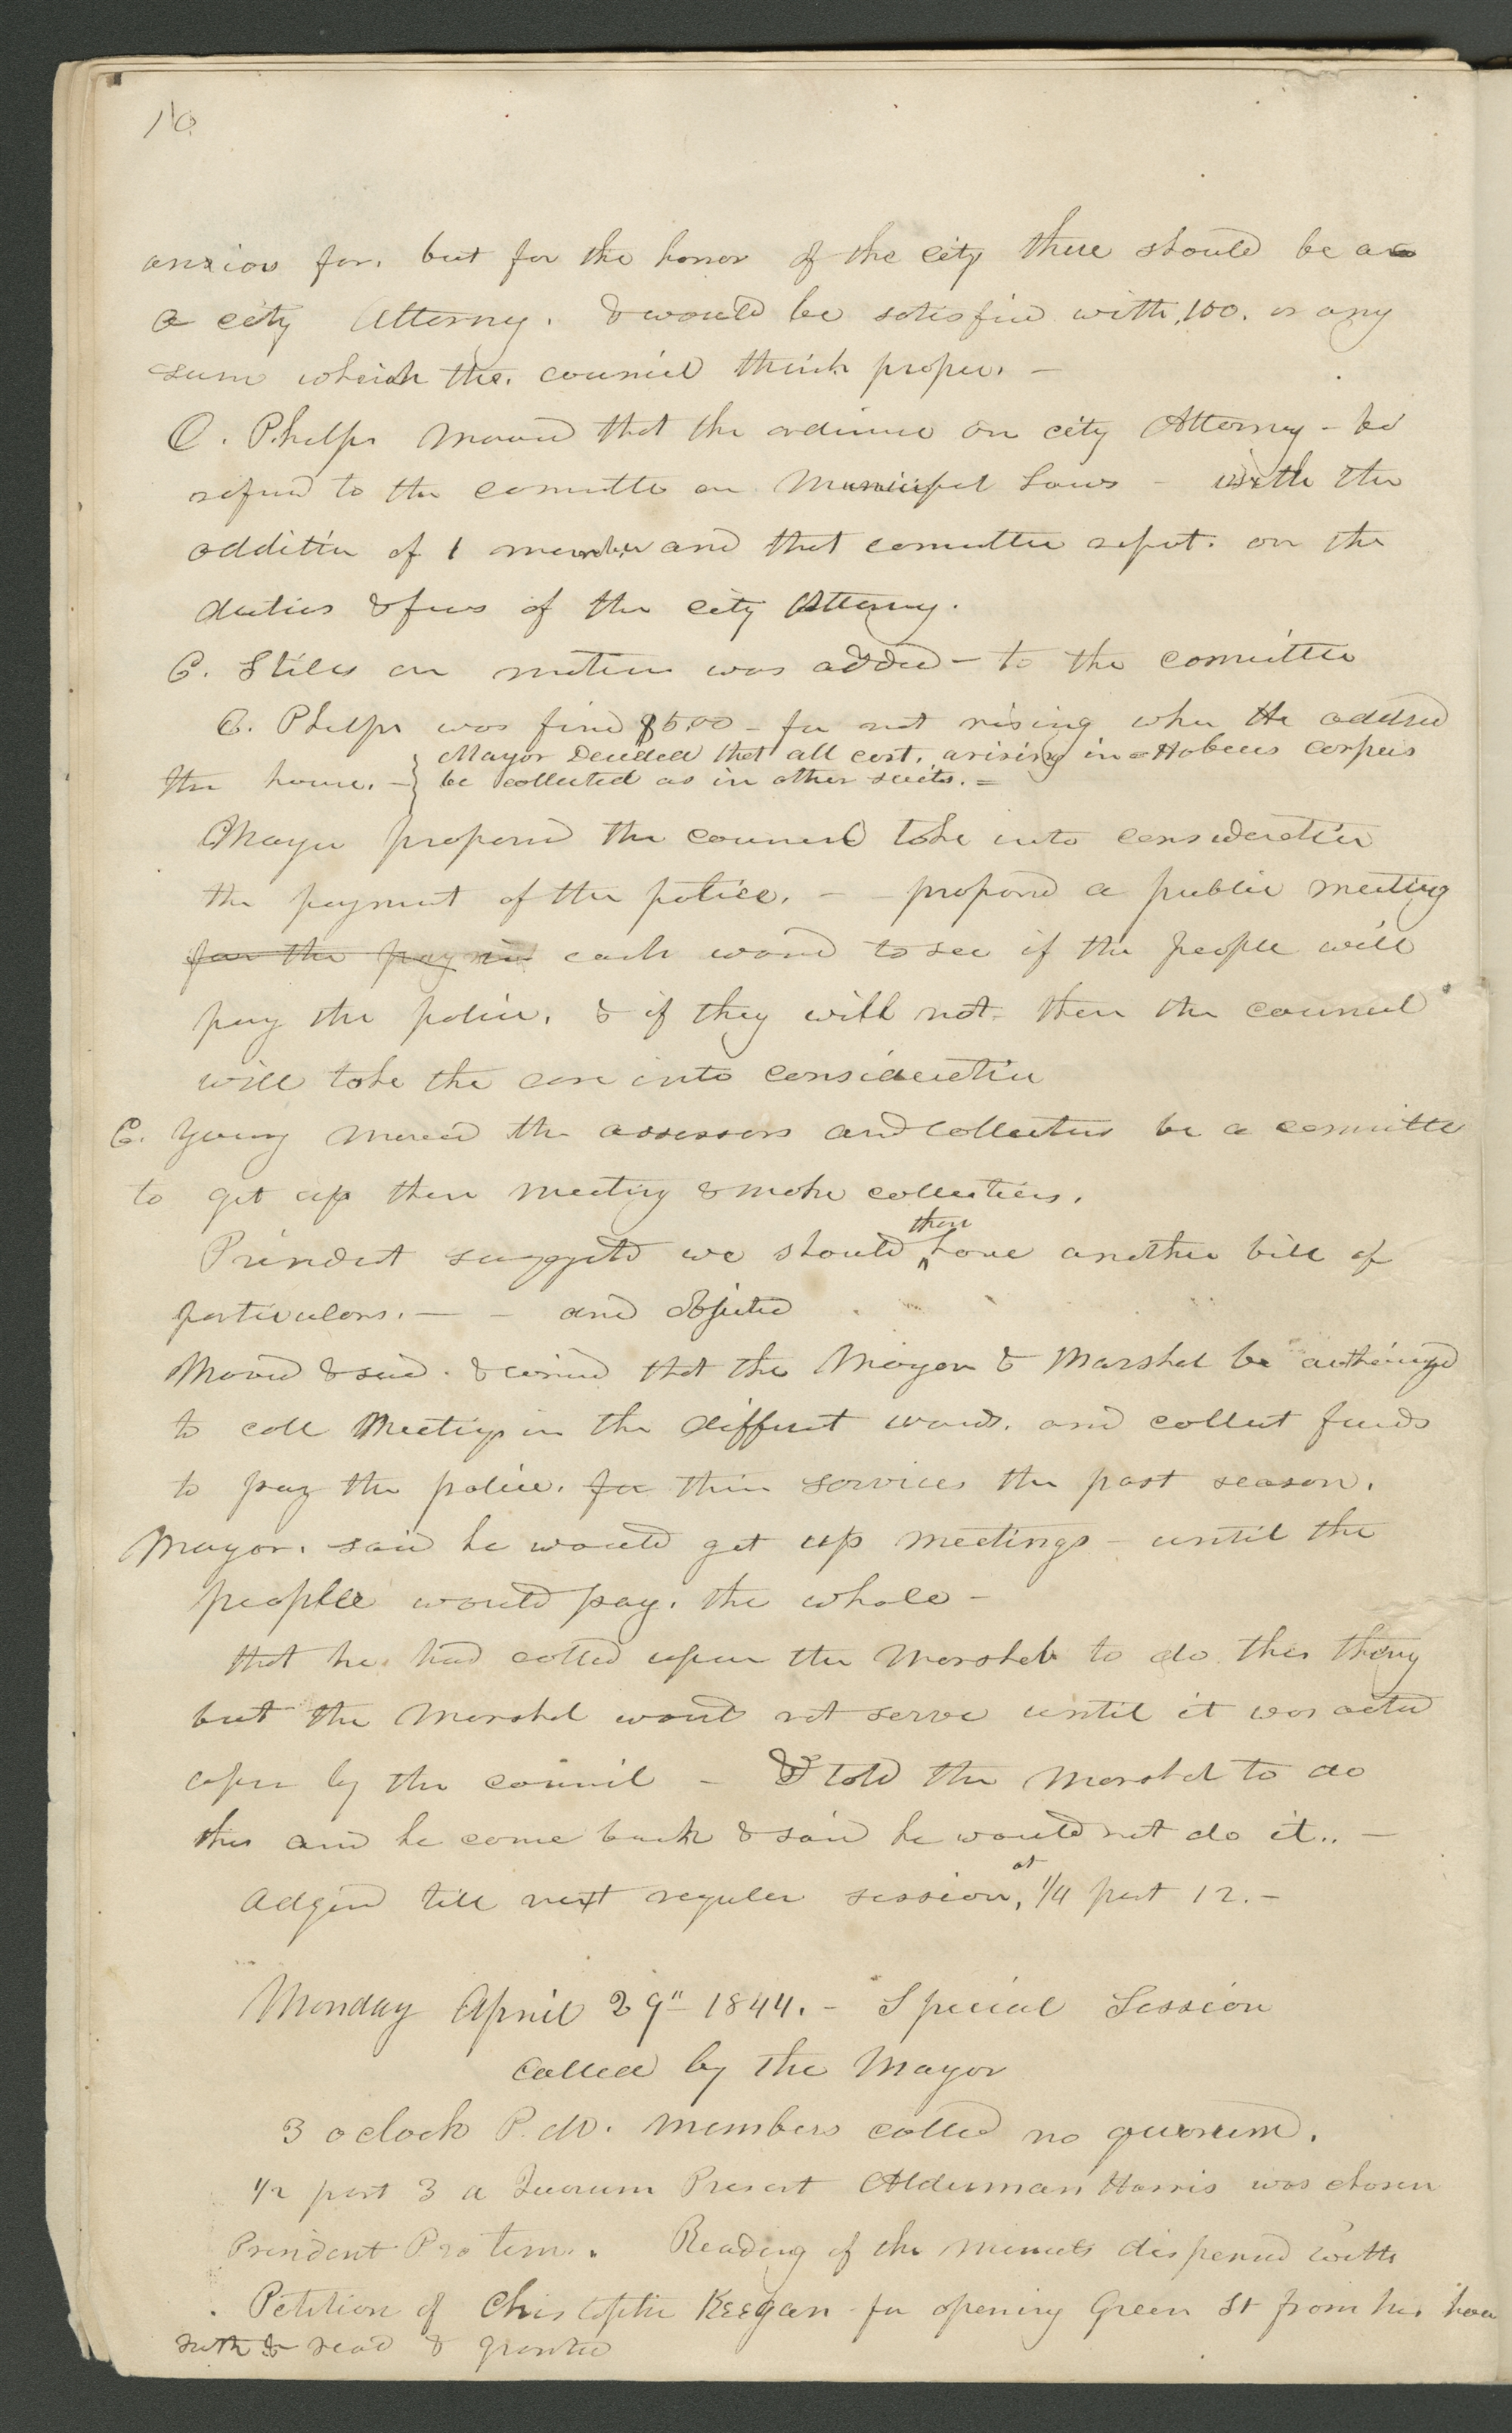 16
anxious for. but for the honor of the city there should be a
a city Attorny. & would be satisfied with, 100. or any
sum which the. council think proper. —
C. Phelps moved that the ordinnce on city Attorney — be
refered to the committe on Municipal Laws — with the
additin of 1 member and that committee report. on the
duties & fees of the city Attorny.
C. Stiles on motion was added — to the committee
C. Phelps was fined $5.00 — for not rising when He addrsed
the house. —
Mayor Decided that all cost. arising in Habeus corpus
be collected as in other suits. =
Mayor proposed the council take into consideratin
the payment of the police. — — proposed a public meeting
for the pay in each ward to see if the people will
pay the police. & if they will not. then the council
will take the case into consideratin
C. Young moved the assessors and collectors be a committe
to get up then meeting & make collections.
President suggstd we should then have another bill of
particulars. — — and objected
Moved & secd. & carried that the Mayor & Marshal be authorizd
to call Meetigs in the diffrent wards. and collect funds
to pay the police. for their services the past season.
Mayor. said he would get up meetings — until the
people would pay. the whole —
that he had called upon the Marshal to do this thing
but the Marshal would not serve until it was acted
upon by the council — I told the Marshal to do
this and he come back & said he would not do it.. —
Adjnd till next regular session, at 1/4 past 12. —
Monday April 29" 1844. — Special Session
called by the Mayor
3 oclock P.M. members called no quorum.
1/2 past 3 a Quorum Present Alderman Harris was chosen
President Pro tem. Reading of the minuts dispensed with
Petition of Christopher Keegan for opening Green St from his hous
read & granted